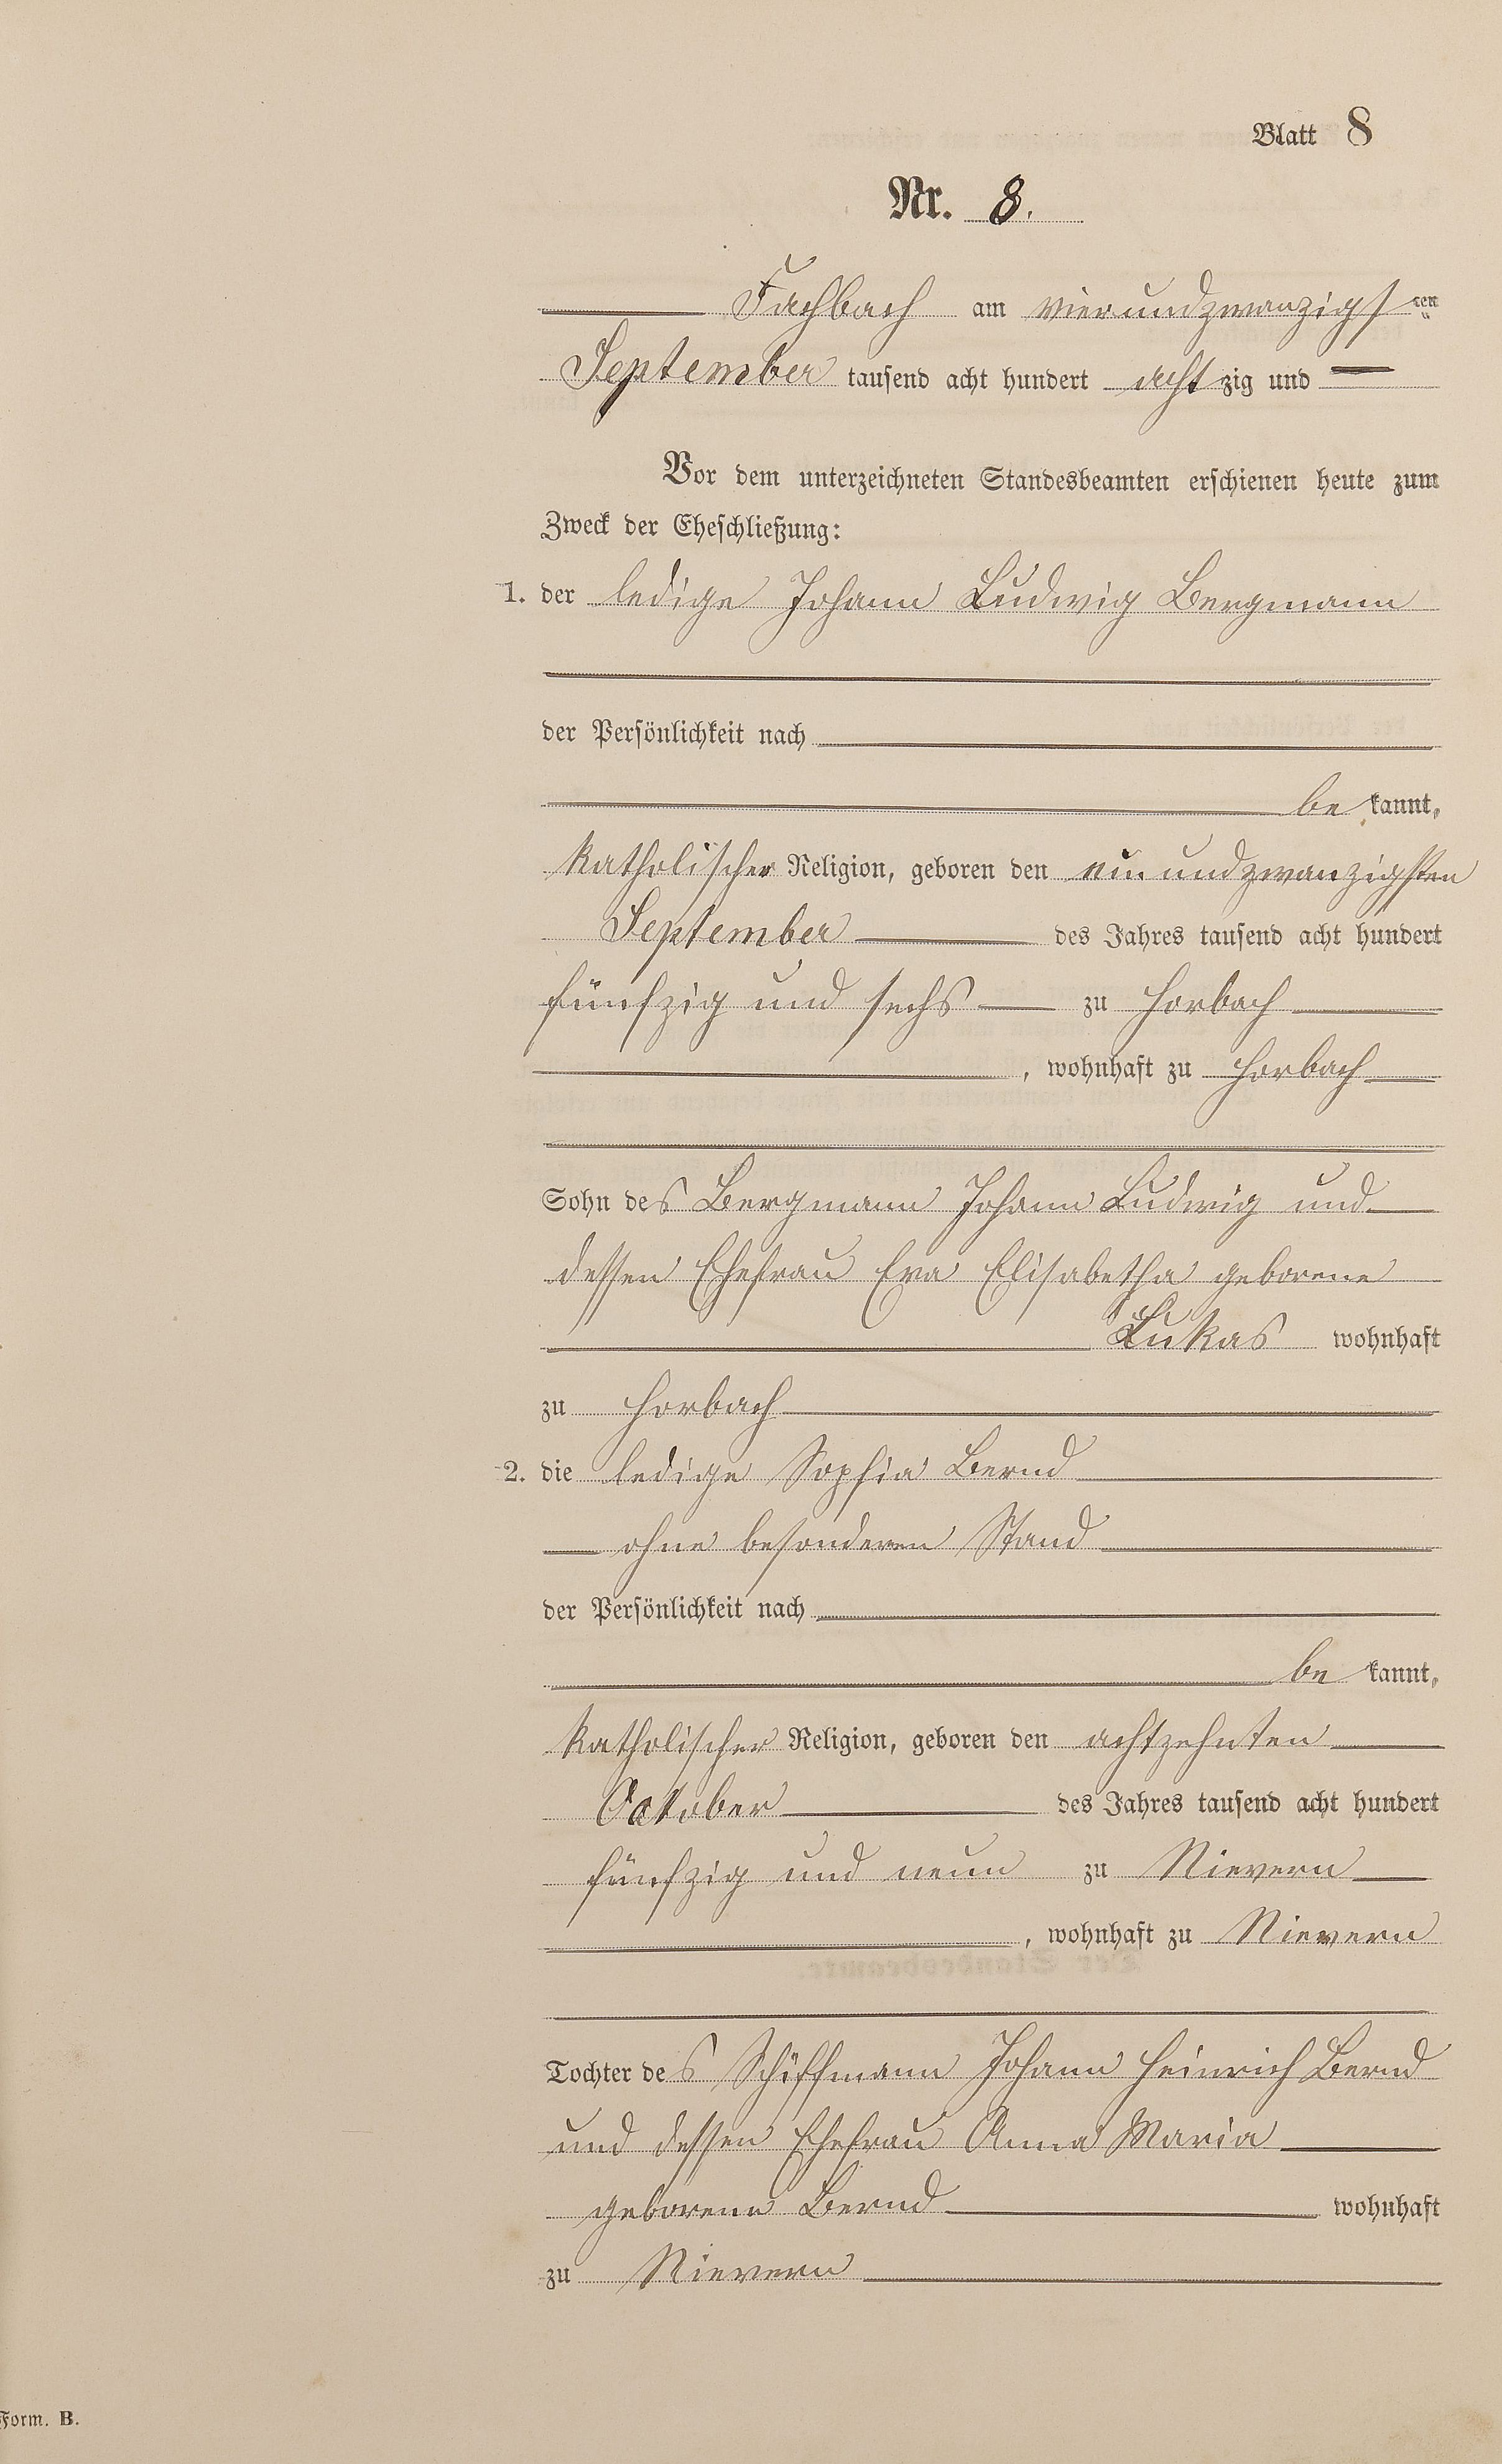 Blatt 8
Nr. 8.
Fachbach am vierundzwanzigsten
September tausend acht hundert achtzig und —
Vor dem unterzeichneten Standesbeamten erschienen heute zum
Zweck der Eheschließung:
1. der ledige Johann Ludwig Bergmann
der Persönlichkeit nach
be kannt,
katholischer Religion, geboren den ein undzwanzigsten
September des Jahres tausend acht hundert
fünfzig und sechs zu Horbach
, wohnhaft zu Horbach
Sohn des Bergmann Johann Ludwig und
dessen Ehefrau Eva Elisabetha geborene
Lukas wohnhaft
zu Horbach
2. die ledige Sophia Bernd
ohne besonderen Stand
der Persönlichkeit nach
be kannt,
katholischer Religion, geboren den achtzehnten
October des Jahres tausend acht hundert
fünfzig und neun zu Nievern
, wohnhaft zu Nievern
Tochter des Schiffmann Johann Heinrich Bernd
und dessen Ehefrau Anna Maria
geborene Bernd wohnhaft
zu Nievern
Form. B.